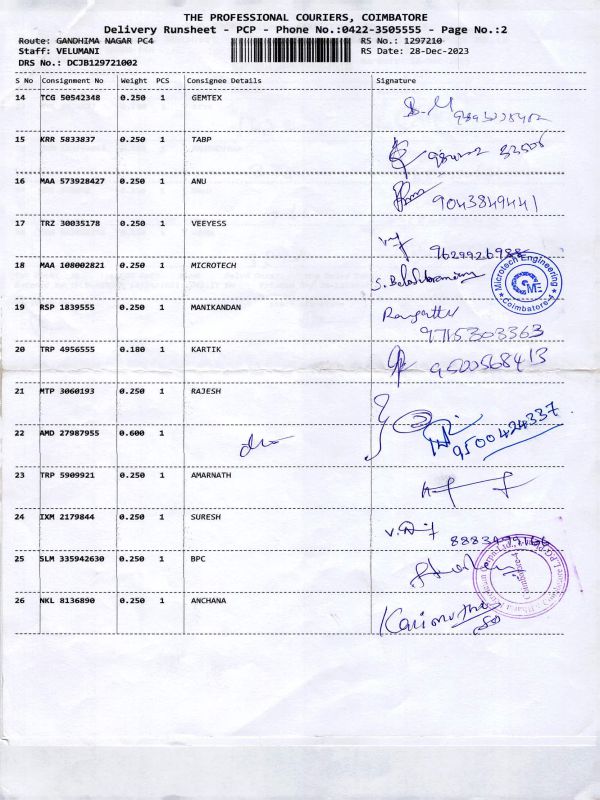 THE PROFESSIONAL COURIERS, COIMBATORE
Delivery Runsheet - PCP - Phone No.:0422-3505555 - Page No.:2
Route: GANDHIMA NAGAR PC4 RS No.: 1297210
Staff: VELUMANI RS Date: 28-Dec-2023
DRS No.: DCJB129721002
S No Consignment No Weight PCS Consignee Details Signature
14 TCG 50542348 0.250 1 GEMTEX
15 KRR 5833837 0.250 1 TABP
16 MAA 573928427 0.250 1 ANU 9043849441
17 TRZ 30035178 0.250 1 VEEYESS 9629926988
18 MAA 108002821 0.250 1 MICROTECH Microtech Engineering ME Coimbatore-4
19 RSP 1839555 0.250 1 MANIKANDAN
9715303363
20 TRP 4956555 0.180 1 KARTIK 9500568413
21 MTP 3060193 0.250 1 RAJESH
9500424337
22 AMD 27987955 0.600 1
23 TRP 5909921 0.250 1 AMARNATH
24 IXM 2179844 0.250 1 SURESH
25 SLM 335942630 0.250 1 BPC Coimbatore-4
26 NKL 8136890 0.250 1 ANCHANA